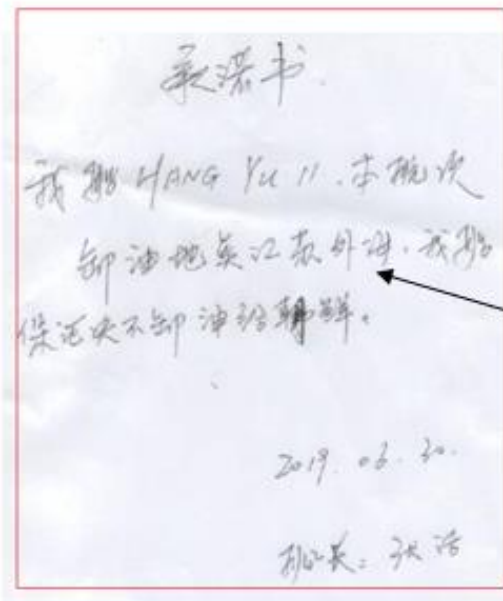 承诺书.
我船 HANG YU 11.本航次
卸油地点江苏外海.我船
保证决不卸油给朝鲜。
2019.06.30.
船长:张